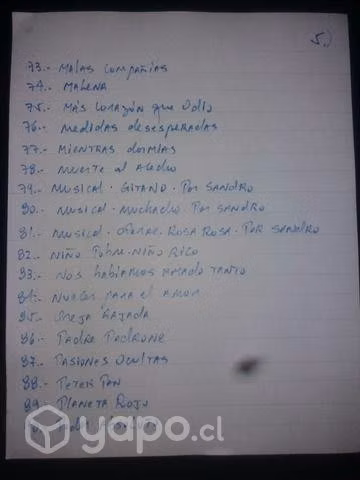 5.)
73.- MALAS COMPAÑIAS
74.- MALENA
75.- MÁS CORAZÓN que Odio
76.- medidas desesperadas
77.- MIENTRAS dORMIAS
78.- MUERTE al Acecho
79.- MUSICAL. GITANO. POR SANDRO
80.- MUSICAL. MUCHACHO. POR SANDRO
81.- MUSICAL. ROSA ROSA. POR SANDRO
82.- NIÑO POBRE. NIÑO RICO
83.- NOS hABIAMOS AMADO TANTO
84.- para el AMOR
85.- Oreja RAJADA
86.- PADRE PADRONE
87.- PASIONES OCULTAS
88.- PETER PAN
89.- PLANETA ROJO
yapo.cl